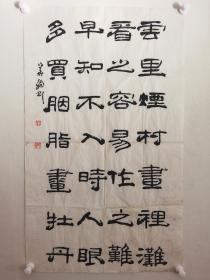 雲里煙村畫裡灘
看之容易作之難
早知不入時人眼
多買胭脂畫牡丹